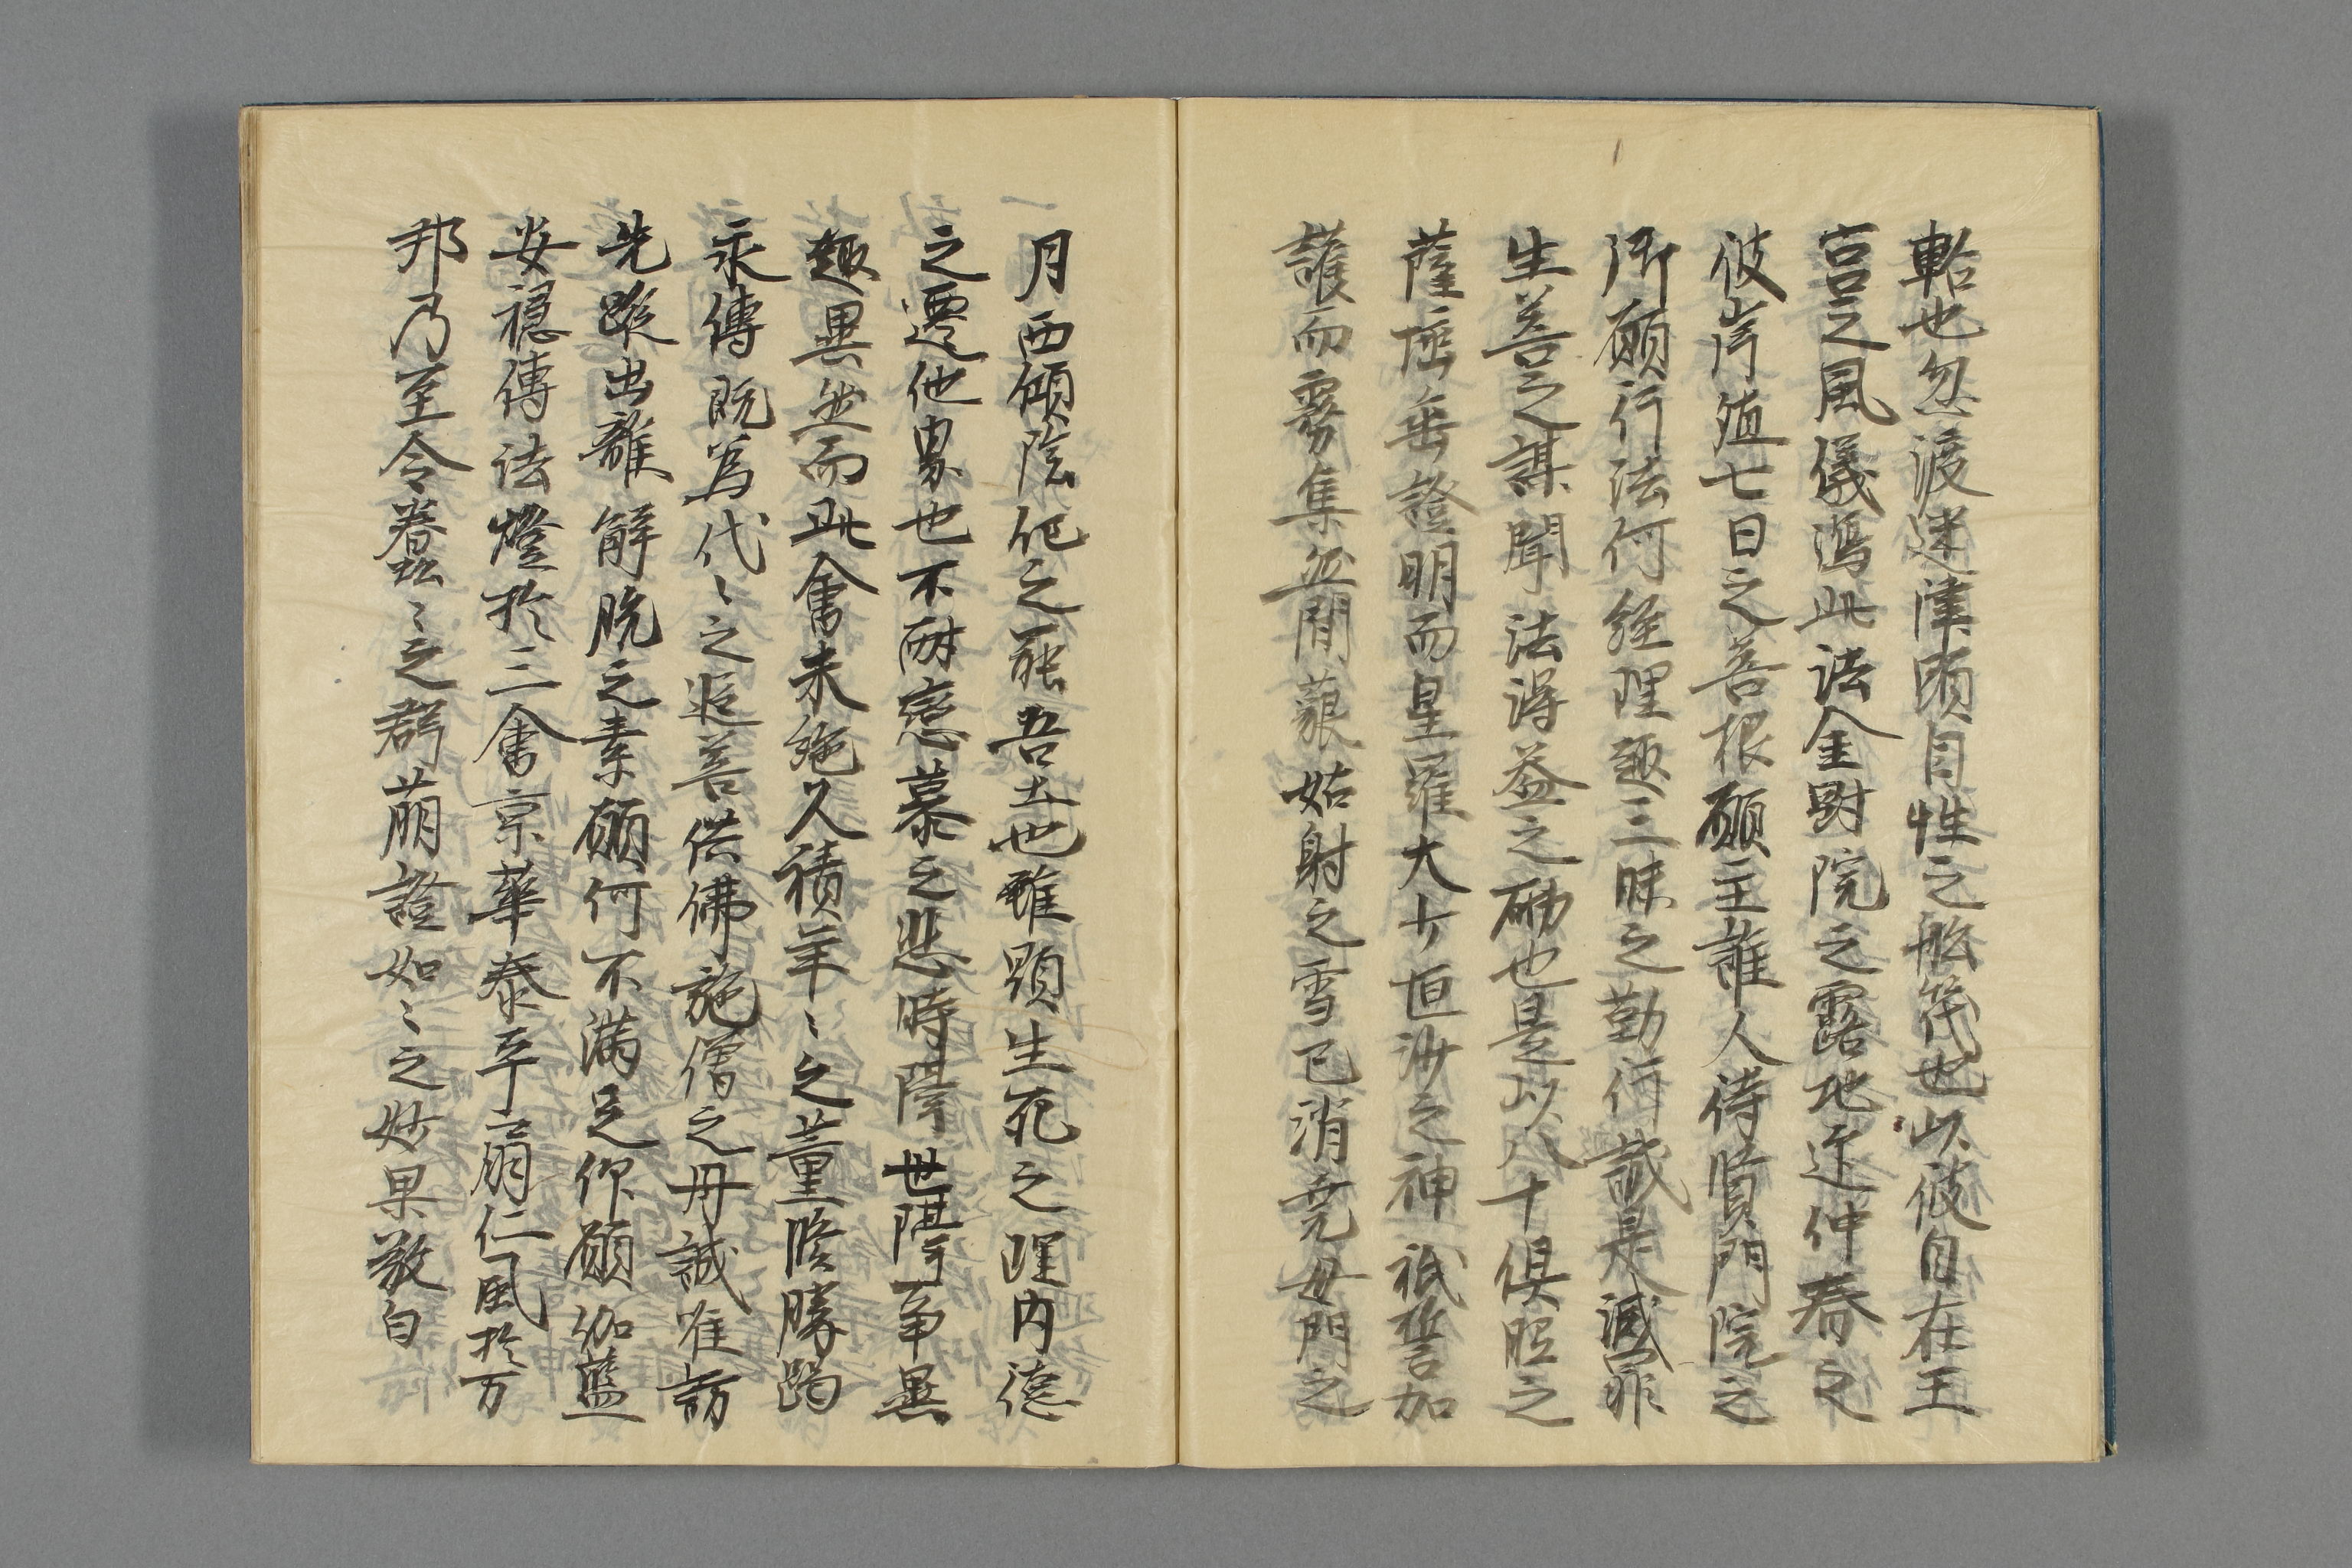 轄也忽渡迷津頭自性之船筏也以彼自在王
宮之風儀遷此法金剛院之露地迎仲春之
彼岸殖七日之善根願主誰人待賢門院之
御願行法何經理趣三昧之勤行誠是滅罪
生善之謀聞法得益之砌也是以八十俱胝之
薩埵垂證明而星羅大少恒沙之神祇誓加
護而霧集然間藐姑射之雪已消堯母門之
月西傾陰化之罷吾土也雖顕生死之理内德
之遷他界也不耐戀慕之悲時隔世隔事異
趣異然而此會未絶久積年〻之薫修勝躅
永傳既為代〻之追善供佛施僧之丹誠唯訪
先蹤出離解脱之素願何不満足仰願伽藍
安穏傳法燈於三會京華泰平扇仁風於万
邦乃至令蠢〻之群萠證如〻之妙果敬白